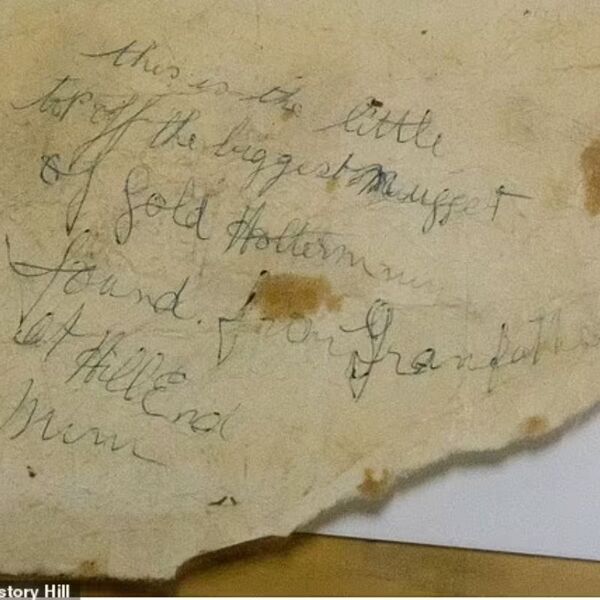 this is the little
top off the biggest nugget
of Gold Holtermann
found. from Granfather
at Hill End
Mum
story Hill